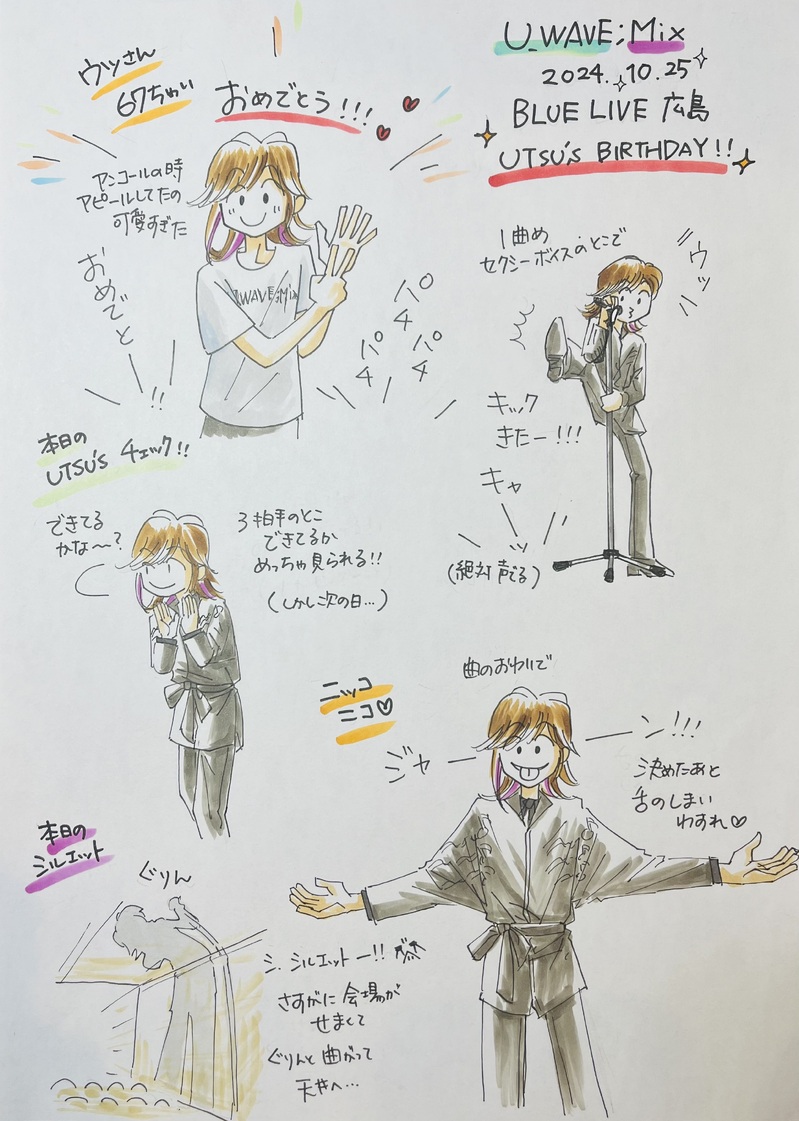 U_WAVE;Mix
2024.10.25
BLUE LIVE 広島
UTSU's BIRTHDAY!!
ウツさん
67ちゅい
おめでとう!!!
アンコールの時
アピールしてたの
可愛すぎた
おめでと
!!
U_WAVE;Mix
パチ
パチ
パチ
1曲め
セクシーボイスのとこで
ウッ
キック
きたー!!!
キャ
ッ
(絶対声でる)
本日の
UTSU's チェック!!
できてる
かな〜?
3拍手のとこ
できてるか
めっちゃ見られる!!
(しかし次の日…)
ニッコ
ニコ♡
曲のおわいで
ジャーン!!!
決めたあと
舌のしまい
わすれ♡
本日の
シルエット
ぐりん
シ、シルエットー!!
さすがに会場が
せまくて
ぐりんと曲がって
天井へ…